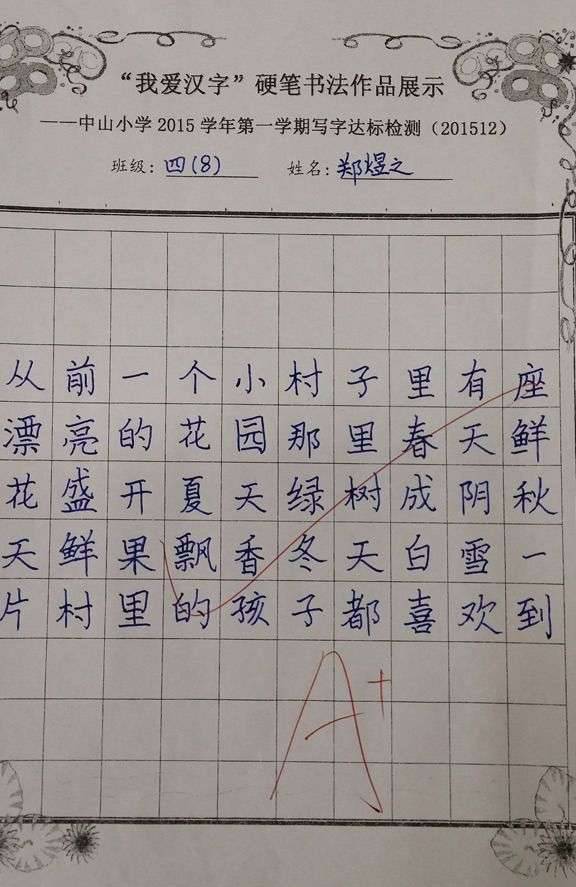 “我爱汉字”硬笔书法作品展示
——中山小学2015学年第一学期写字达标检测（201512）
班级：四(8) 姓名：郑煜之
从前一个小村子里有座
漂亮的花园那里春天鲜
花盛开夏天绿树成阴秋
天鲜果飘香冬天白雪一
片村里的孩子都喜欢到
A+